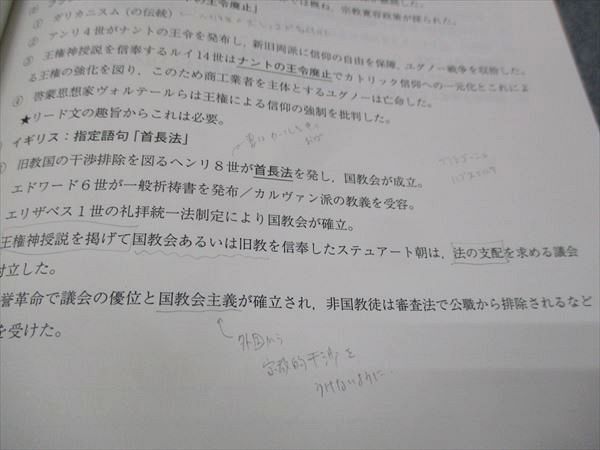 は概ね、宗教寛容政策が採られた。
トの王令廃止」
① ガリカニスム（の伝統）
② アンリ４世がナントの王令を発布し、新旧両派に信仰の自由を保障、ユグノー戦争を収拾した。
③ 王権神授説を信奉するルイ14世はナントの王令廃止でカトリック信仰への一元化とこれによ
る王権の強化を図り、このため商工業者を主体とするユグノーは亡命した。
④ 啓蒙思想家ヴォルテールらは王権による信仰の強制を批判した。
★リード文の趣旨からこれは必要。
イギリス：指定語句「首長法」
旧教国の干渉排除を図るヘンリ８世が首長法を発し、国教会が成立。
エドワード６世が一般祈祷書を発布／カルヴァン派の教義を受容。
エリザベス１世の礼拝統一法制定により国教会が確立。
王権神授説を掲げて国教会あるいは旧教を信奉したステュアート朝は、法の支配を求める議会
対立した。
誉革命で議会の優位と国教会主義が確立され、非国教徒は審査法で公職から排除されるなど
を受けた。
外国から
宗教的干渉を
うけないように.